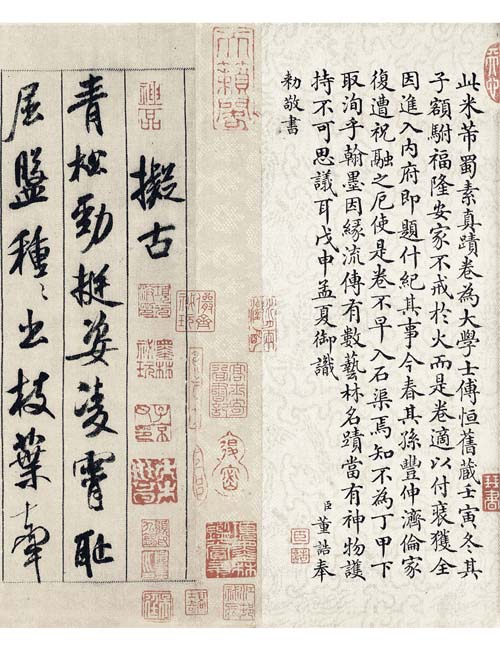 此米芾蜀素真蹟卷為大學士傅恒舊藏壬寅冬其
子額駙福隆安家不戒於火而是卷適以付裝獲全
因進入內府即題什紀其事今春其孫豐伸濟倫家
復遭祝融之厄使是卷不早入石渠焉知不為丁甲下
取洵乎翰墨因緣流傳有數藝林名蹟當有神物護
持不可思議耳戊申孟夏御識
臣董誥奉
勅敬書
天籟閣
神品
擬古
青松勁挺姿凌霄恥
屈盤種〻出枝葉牽